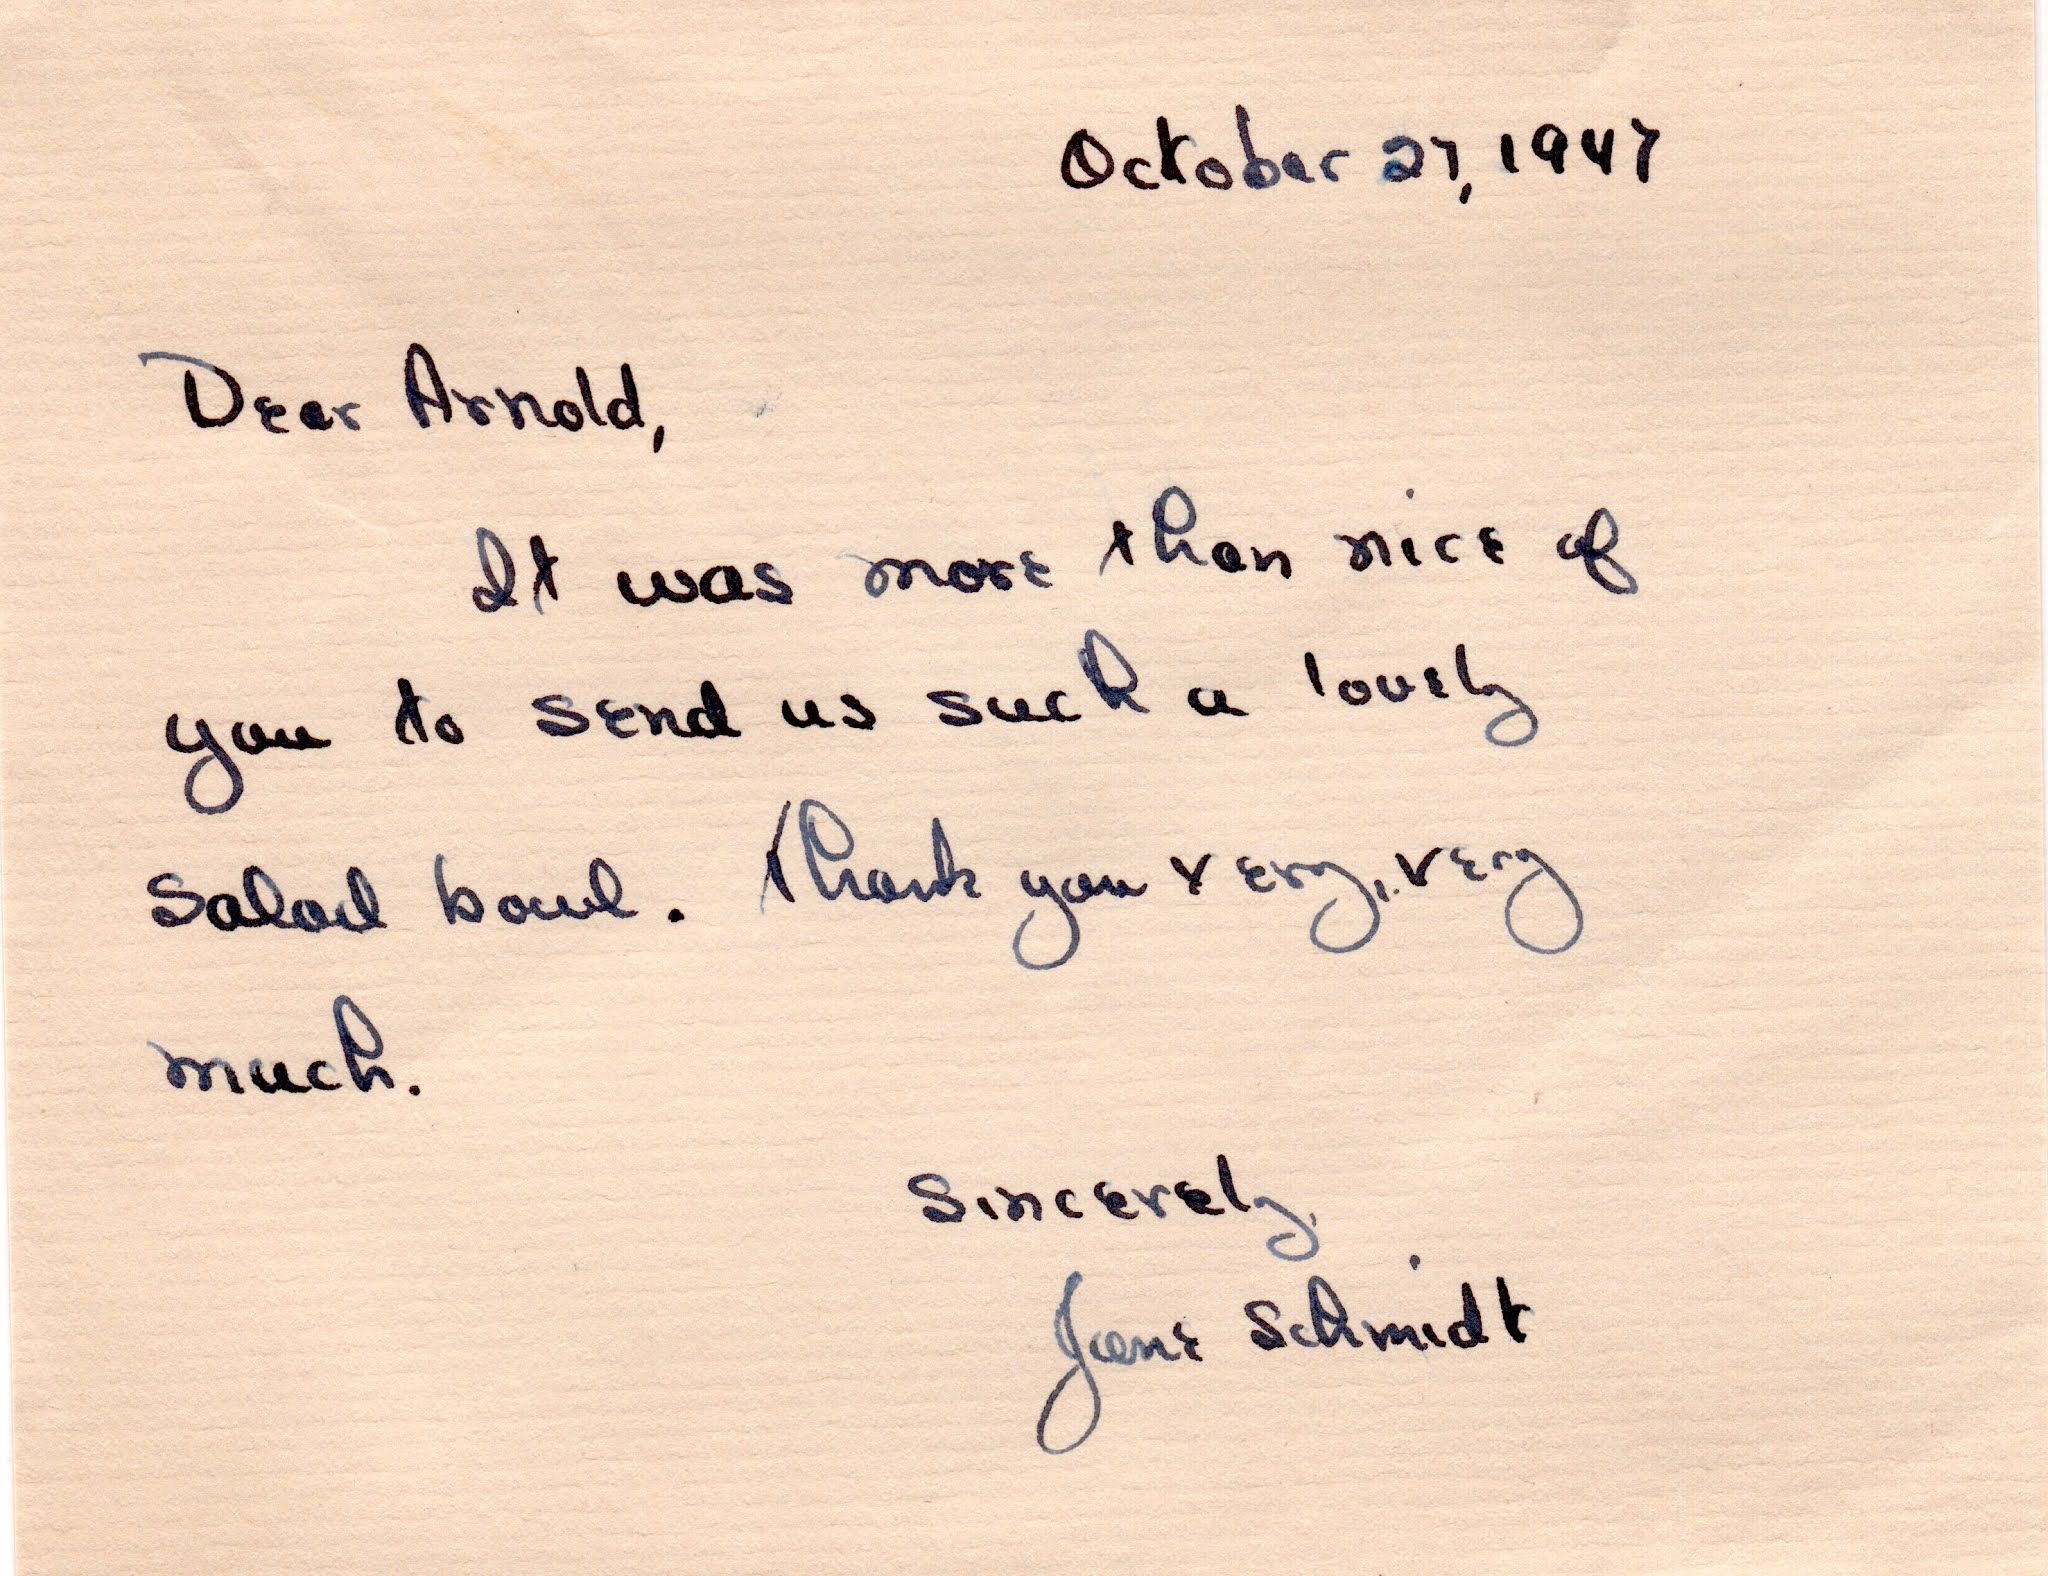 October 27, 1947
Dear Arnold,
It was more than nice of
you to send us such a lovely
salad bowl. Thank you very, very
much.
Sincerely,
Jane Schmidt